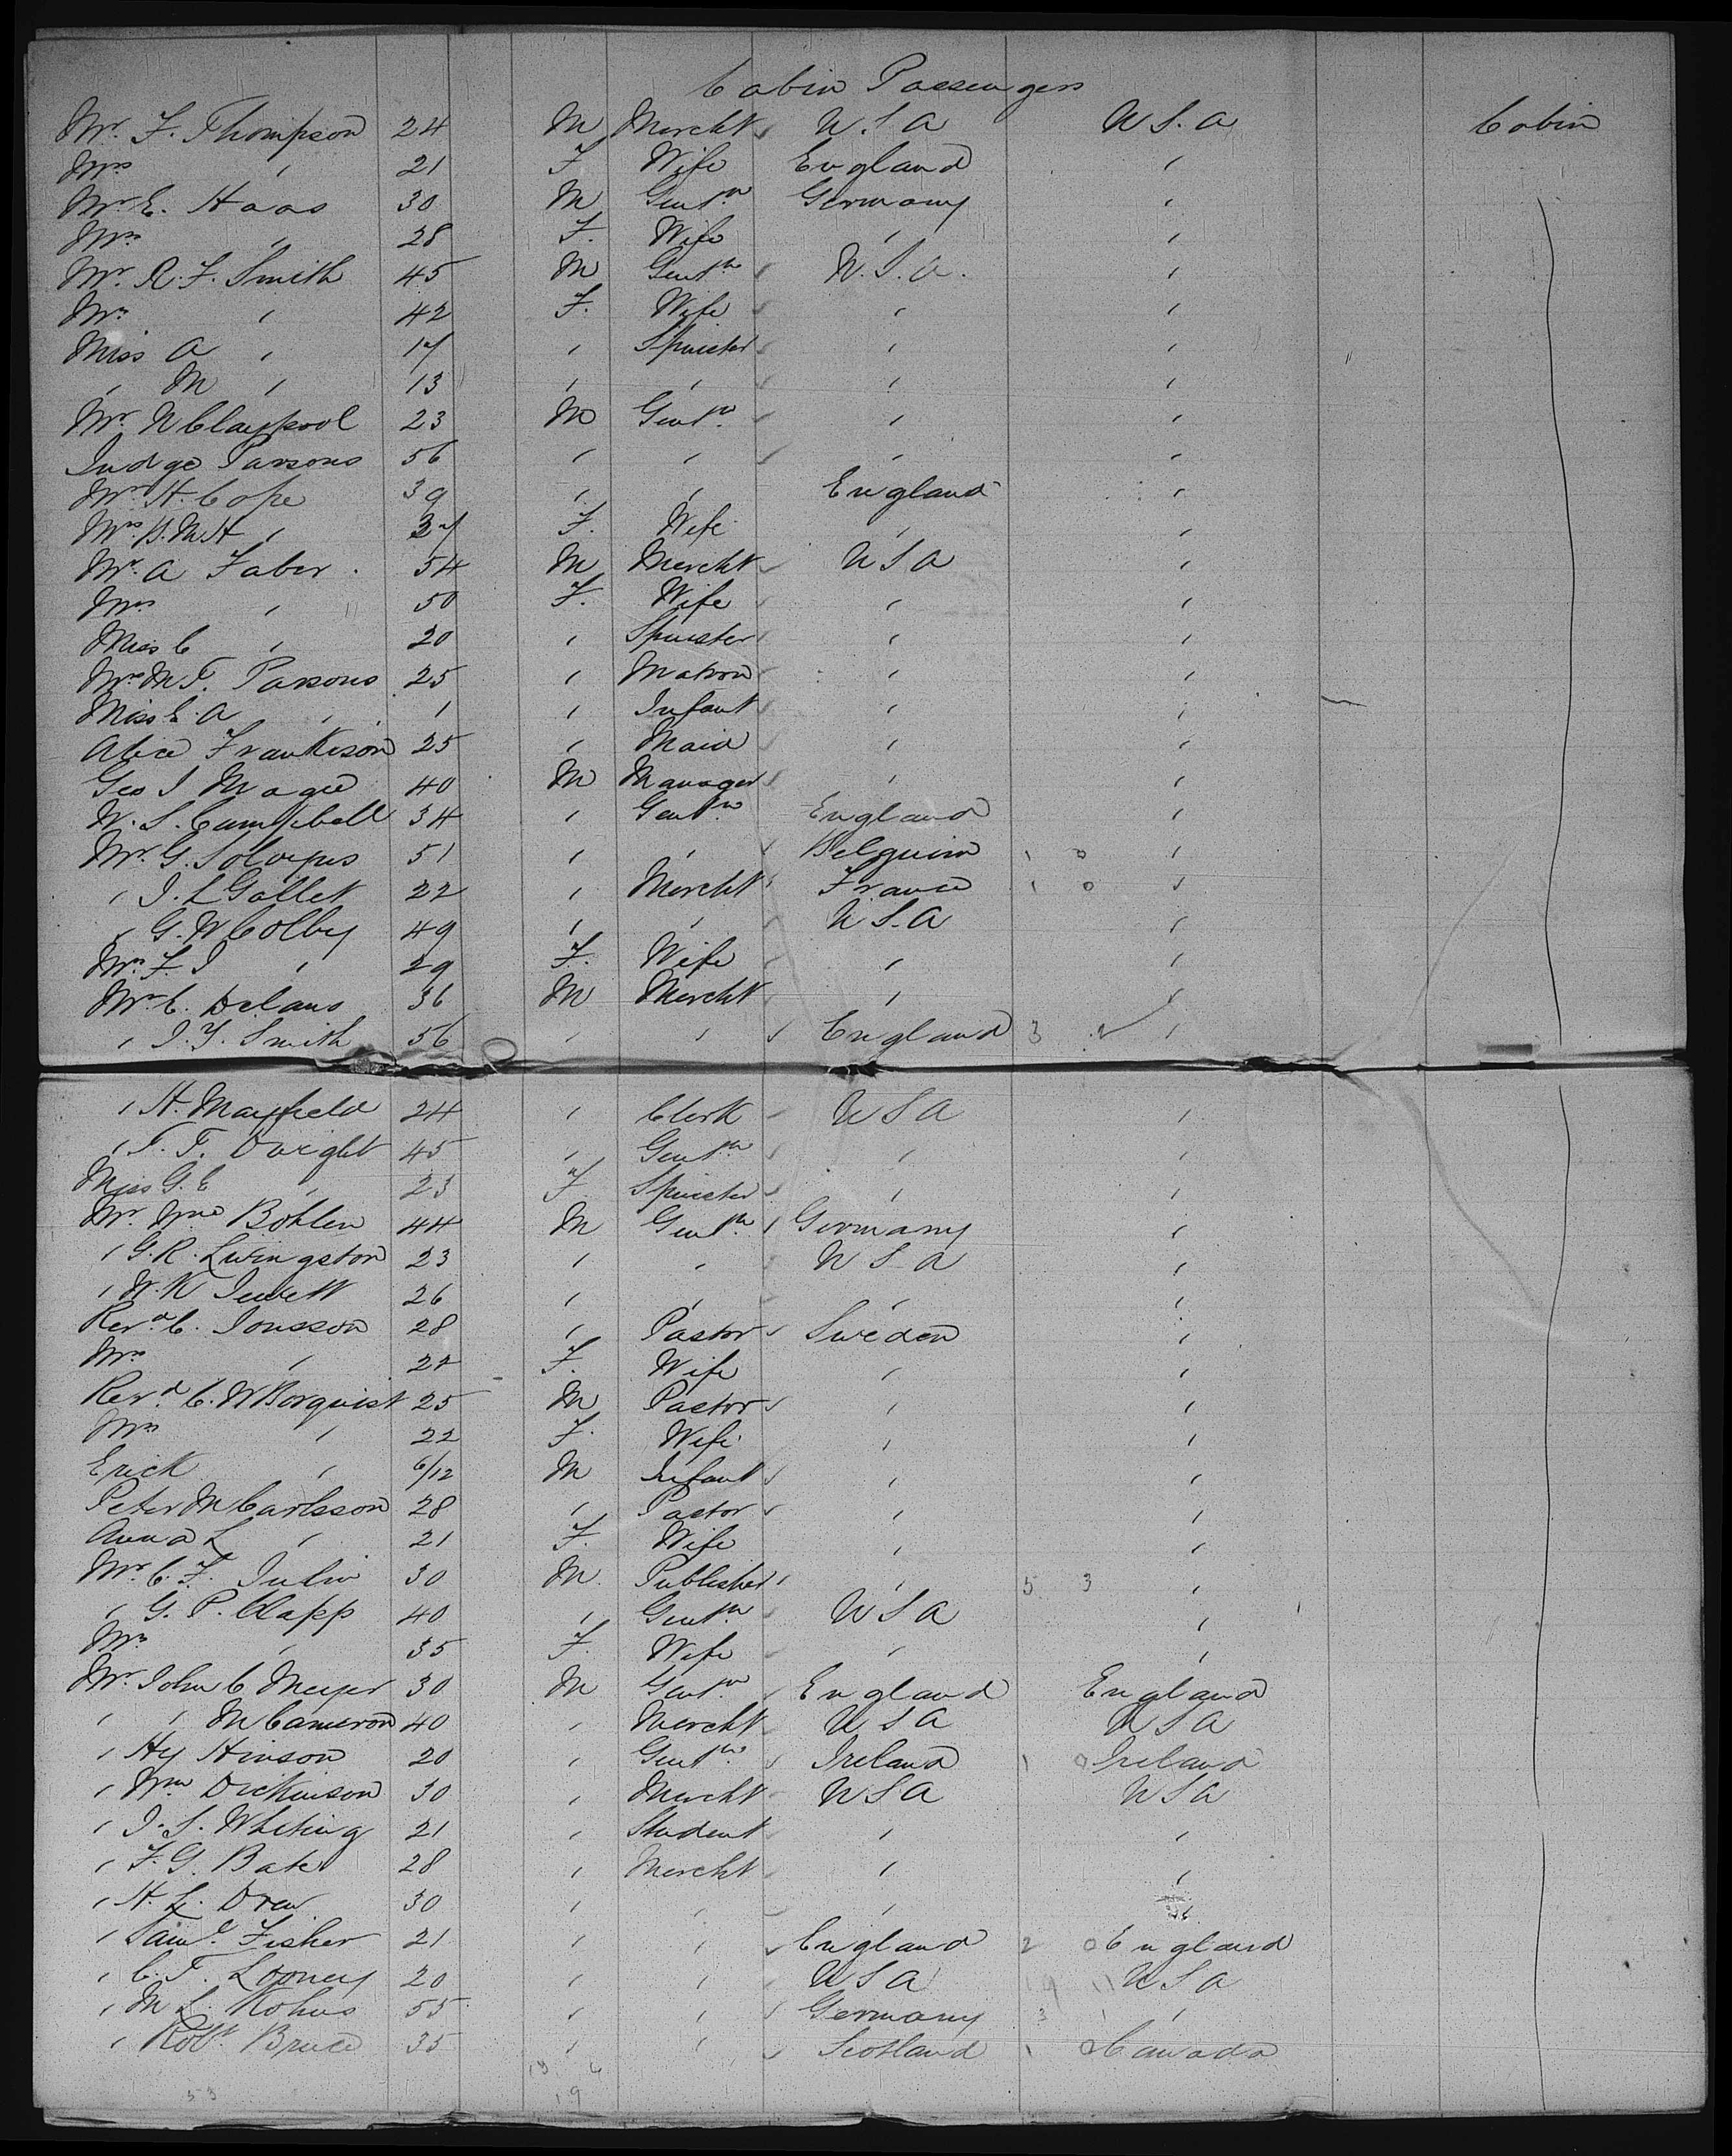 Cabin Passengers
Mr. F. Thompson 24 M Mercht U.S.A U.S.A Cabin
Mrs " 21 F Wife England "
Mr E. Haas 30 M Gentn Germany "
Mrs " 28 F. Wife " "
Mr. R. F. Smith 45 M Gentn U.S.A. "
Mrs " 42 F. Wife " "
Miss A " 17 " Spinster " "
" M " 13 " " " "
Mr. N Claypool 23 M Gentn " "
Judge Parsons 56 " " " "
Mr H. Cope 39 " " England "
Mrs B. M. H " 27 F. Wife " "
Mr. A Faber. 54 M Mercht U S A "
Mrs " 50 F. Wife " "
Miss C " 20 " Spinster " "
Mrs M. T. Parsons 25 " Matron " "
Miss E. A " 1 " Infant " "
Alice Frankison 25 " Maid " "
Geo J Magee 40 M Manager " "
W. S. Campbell 34 " Gentn England "
Mr. G. 51 " " Belguim 1 0 "
" J. L Gallet 22 " Mercht France 1 0 "
" G. W Colby 49 " " U S.A "
Mrs F. J " 29 F. Wife " "
Mr C. Delano 36 M Mercht " "
" J. Y. Smith 56 " " England 3 "
" H. Mayfield 24 " Clerk U S A "
" T. T. Dwight 45 " Gentn " "
Miss G. E " 23 F Spinster " "
Mr. Wm Bohlen 44 M Gentn Germany "
" G. R. Livingston 23 " " U S A "
" W. K Jewett 26 " " " "
Revd C. Jonsson 28 " Pastor Sweden "
Mrs " 22 F. Wife " "
Revd C. W Borquist 25 M Pastor " "
Mrs " 22 F. Wife " "
Erick " 6/12 M Infant " "
Peter M Carlsson 28 " Pastor " "
Anna L " 21 F. Wife " "
Mr. C. F. Julin 30 M. Publisher " 5 3 "
" G. P. Clapp 40 " Gentn U S A "
Mrs " 35 F. Wife " "
Mr. John C Meyer 30 M Gentn England England
" " M Cameron 40 " Mercht U S A U S A
" Hy Hinson 20 " Gentn Ireland 1 0 Ireland
" Wm Dickinson 30 " Mercht U S A U S A
" J. S. Whiting 21 " Student " "
" F. G. Bate 28 " Mercht " "
" H. L. Drew 30 " " "
" Saml. Fisher 21 " " England 2 0 England
" C. T. Looney 20 " " U S A 19 11 U S A
" M L. Kohns 55 " " Germany 3 1 "
" Robt. Bruce 35 " " Scotland 1 0 Canada
53 19